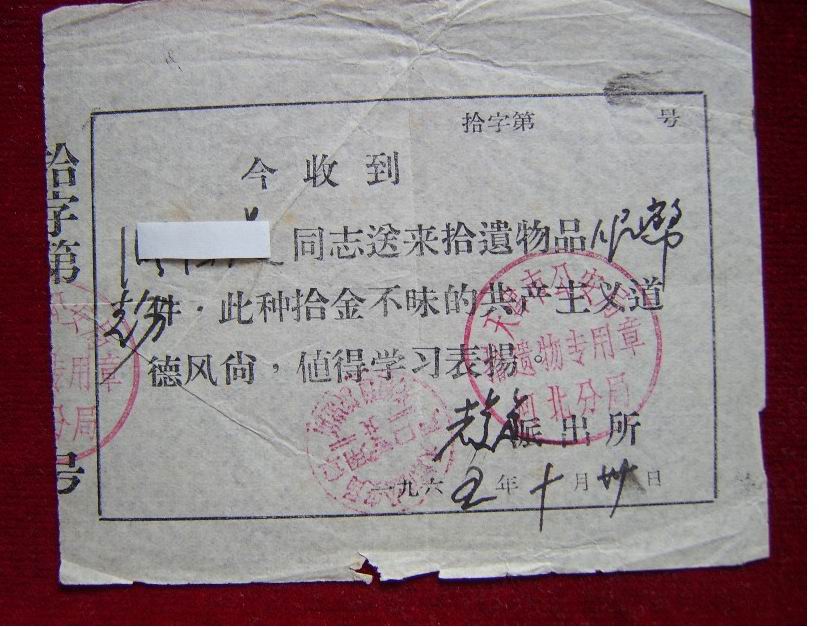 拾字第 号
今收到
同志送来拾遺物品人民幣
件，此种拾金不昧的共产主义道
德风尙，値得学习表揚。
派出所
一九六五年十月卅日
拾字第
号
天津市公安局
拾遺物专用章
河北分局
专用章
分局